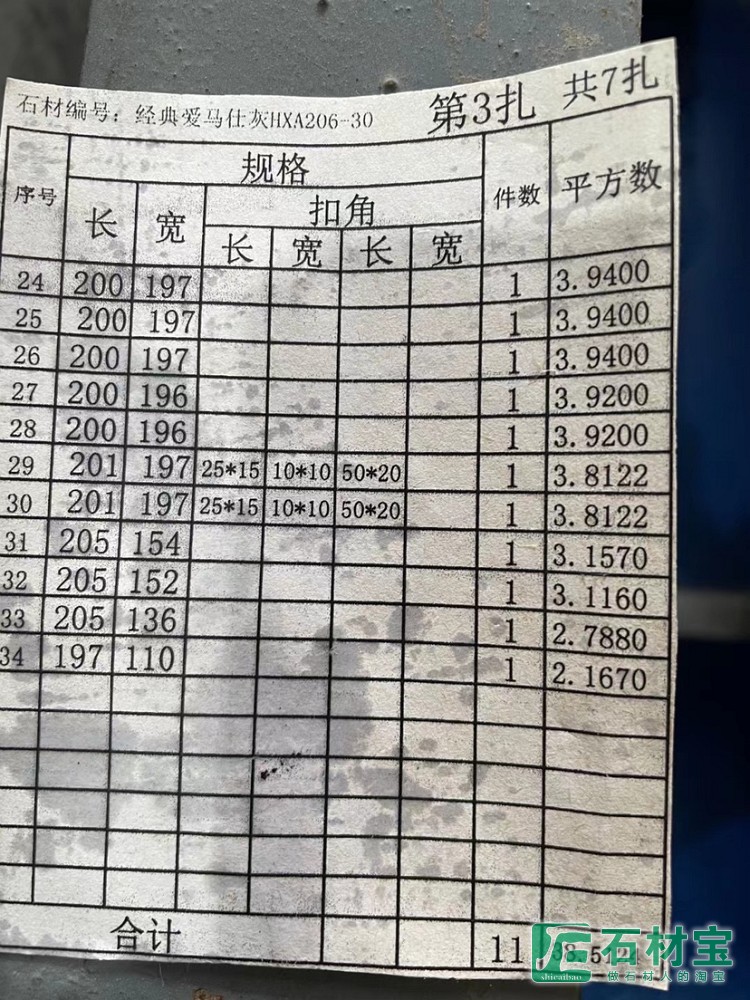 石材编号：经典爱马仕灰HXA206-30 第3扎 共7扎
序号 规格 件数 平方数
长 宽 扣角
长 宽 长 宽
24 200 197 1 3.9400
25 200 197 1 3.9400
26 200 197 1 3.9400
27 200 196 1 3.9200
28 200 196 1 3.9200
29 201 197 25*15 10*10 50*20 1 3.8122
30 201 197 25*15 10*10 50*20 1 3.8122
31 205 154 1 3.1570
32 205 152 1 3.1160
33 205 136 1 2.7880
34 197 110 1 2.1670
合计 11
石材宝
shicaibao
做石材人的淘宝